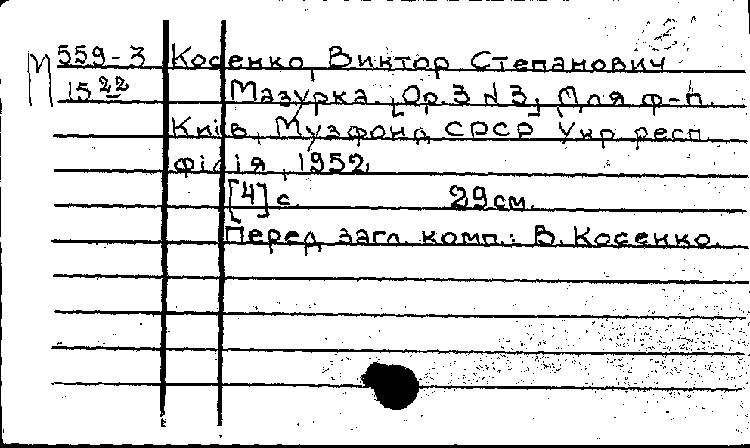 М 559-3 Косенко, Виктор Степанович
15 22 Мазурка. [Ор. 3 N 3] Для ф-п.
Київ, Музфонд СРСР Укр. респ.
філія, 1952.
[4] с. 29 см.
Перед загл. комп.: В. Косенко.